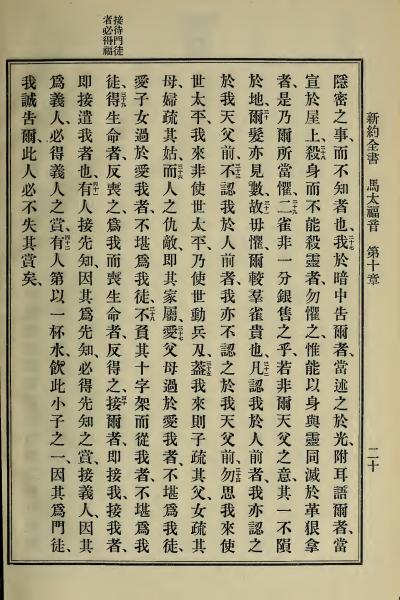 新約全書 馬太福音 第十章 二十
接待門徒
者必得福
隱密之事、而不知者也、二十七我於暗中告爾者、當述之於光、附耳語爾者、當
宣於屋上、二十八殺身而不能殺靈者、勿懼之、惟能以身與靈同滅於革狠拿
者、是乃爾所當懼、二十九二雀非一分銀售之乎、若非爾天父之意、其一不隕
於地、三十爾髮亦見數、三十一故毋懼、爾較羣雀貴也、三十二凡認我於人前者、我亦認之
於我天父前、三十三不認我於人前者、我亦不認之於我天父前、三十四勿思我來使
世太平、我來非使世太平、乃使世動兵刄、三十五蓋我來則子疏其父、女疏其
母、婦疏其姑、三十六而人之仇敵、即其家屬、三十七愛父母過於愛我者、不堪爲我徒、
愛子女過於愛我者、不堪爲我徒、三十八不負其十字架而從我者、不堪爲我
徒、三十九得生命者、反喪之、爲我而喪生命者、反得之、四十接爾者、即接我、接我者、
即接遣我者也、四十一有人接先知、因其爲先知、必得先知之賞、接義人、因其
爲義人、必得義人之賞、四十二有人第以一杯水、飲此小子之一、因其爲門徒、
我誠告爾、此人必不失其賞矣、